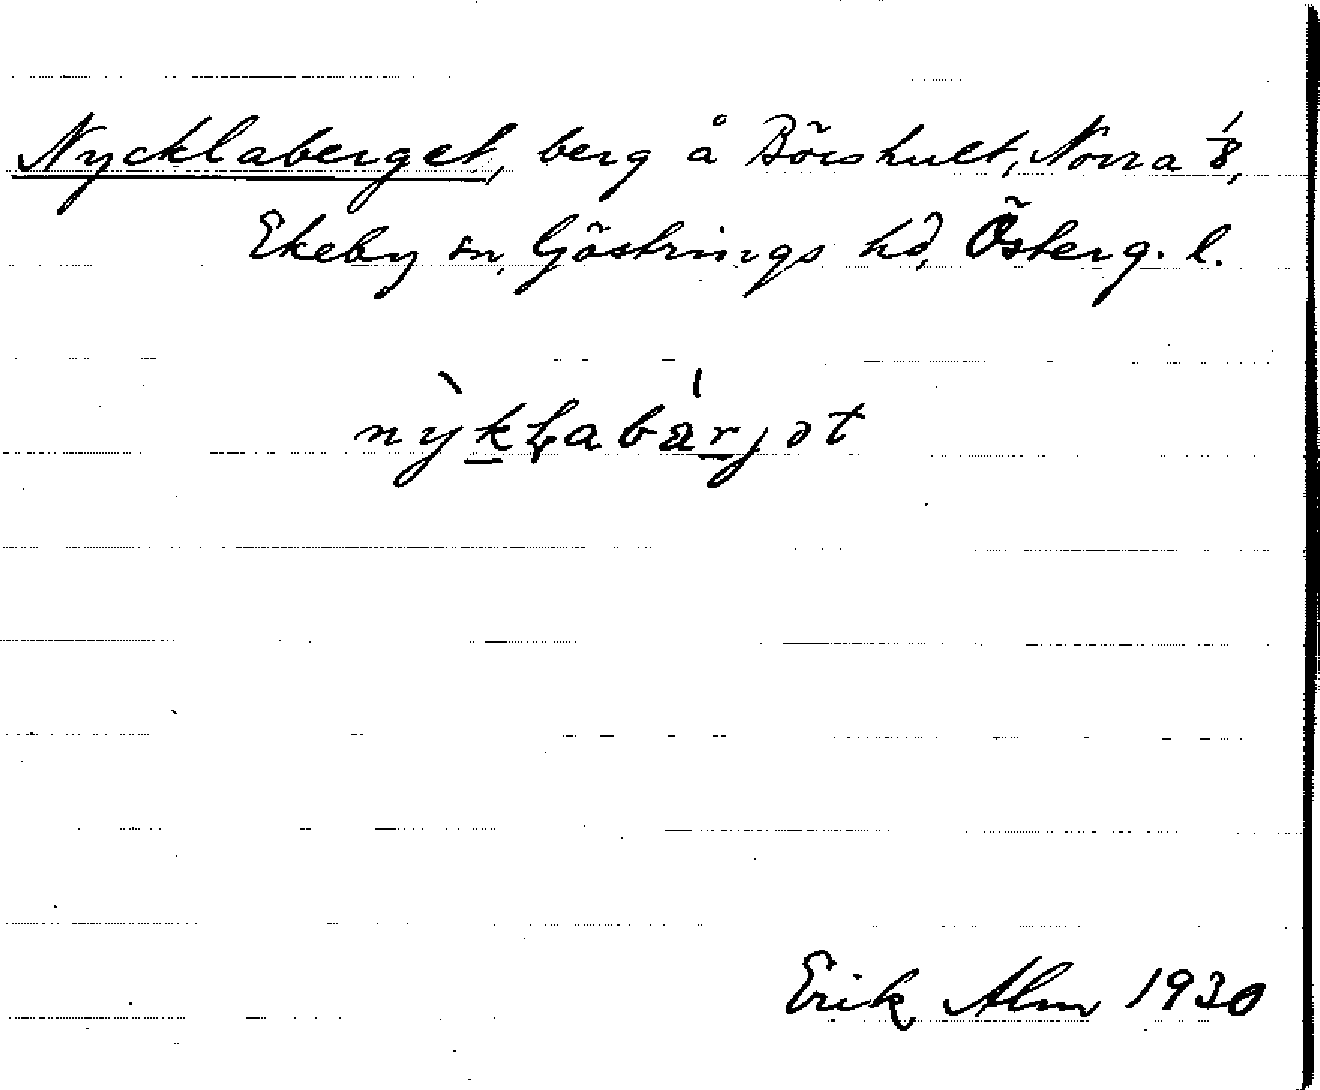 Nycklaberget, berg å Börshult, Norra 1/8,
Ekeby sn, Göstrings hd, Österg. l.
Erik Alm 1930